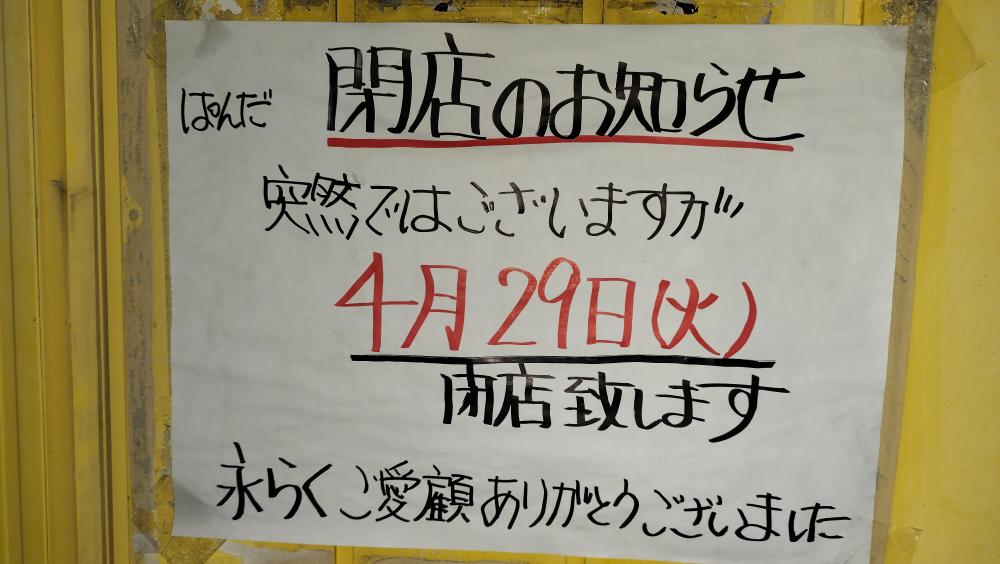 ぱんだ 閉店のお知らせ
突然ではございますが
4月29日(火)
閉店致します
永らくご愛顧ありがとうございました